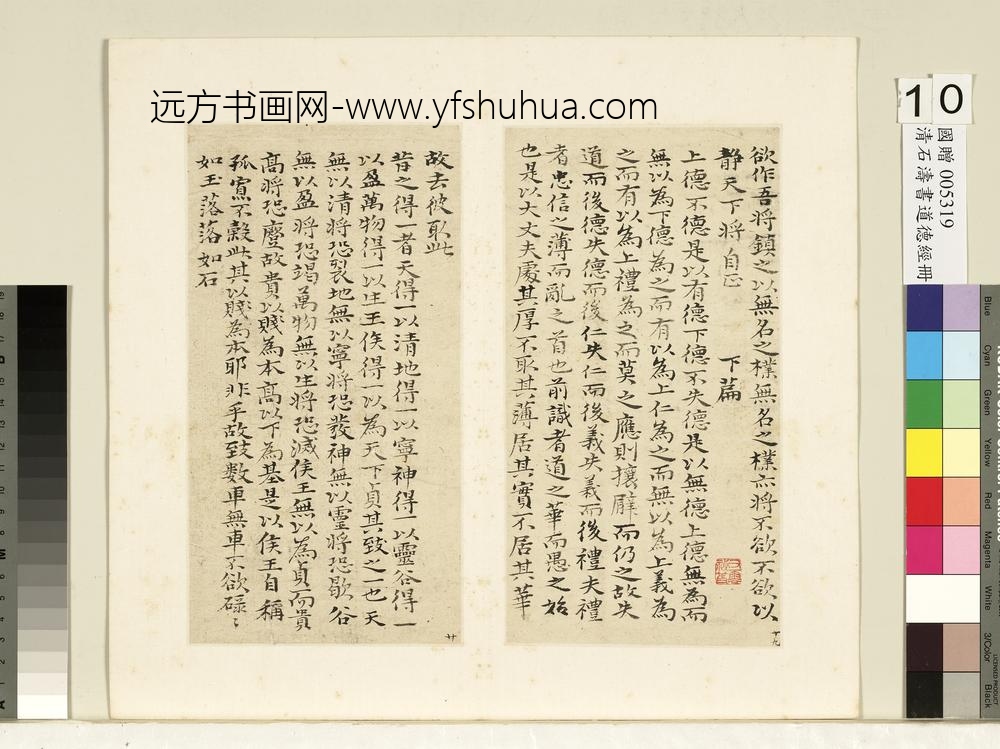 远方书画网-www.yfshuhua.com
10
國贈 005319
清石濤書道德經冊
欲作吾將鎮之以無名之樸無名之樸亦將不欲不欲以
靜天下將自正 下篇
上德不德是以有德下德不失德是以無德上德無為而
無以為下德為之而有以為上仁為之而無以為上義為
之而有以為上禮為之而莫之應則攘臂而仍之故失
道而後德失德而後仁失仁而後義失義而後禮夫禮
者忠信之薄而亂之首也前識者道之華而愚之始
也是以大丈夫處其厚不取其薄居其實不居其華
十九
故去彼取此
昔之得一者天得一以清地得一以寧神得一以靈谷得一
以盈萬物得一以生王侯得一以為天下貞其致之一也天
無以清將恐裂地無以寧將恐發神無以靈將恐歇谷
無以盈將恐竭萬物無以生將恐滅侯王無以為貞而貴
高將恐蹷故貴以賤為本高以下為基是以侯王自稱
孤寡不穀此其以賤為本耶非乎故致数車無車不欲碌〻
如玉落落如石
廿
Blue
Cyan
Green
Yellow
Red
Magenta
White
3/Color
Black